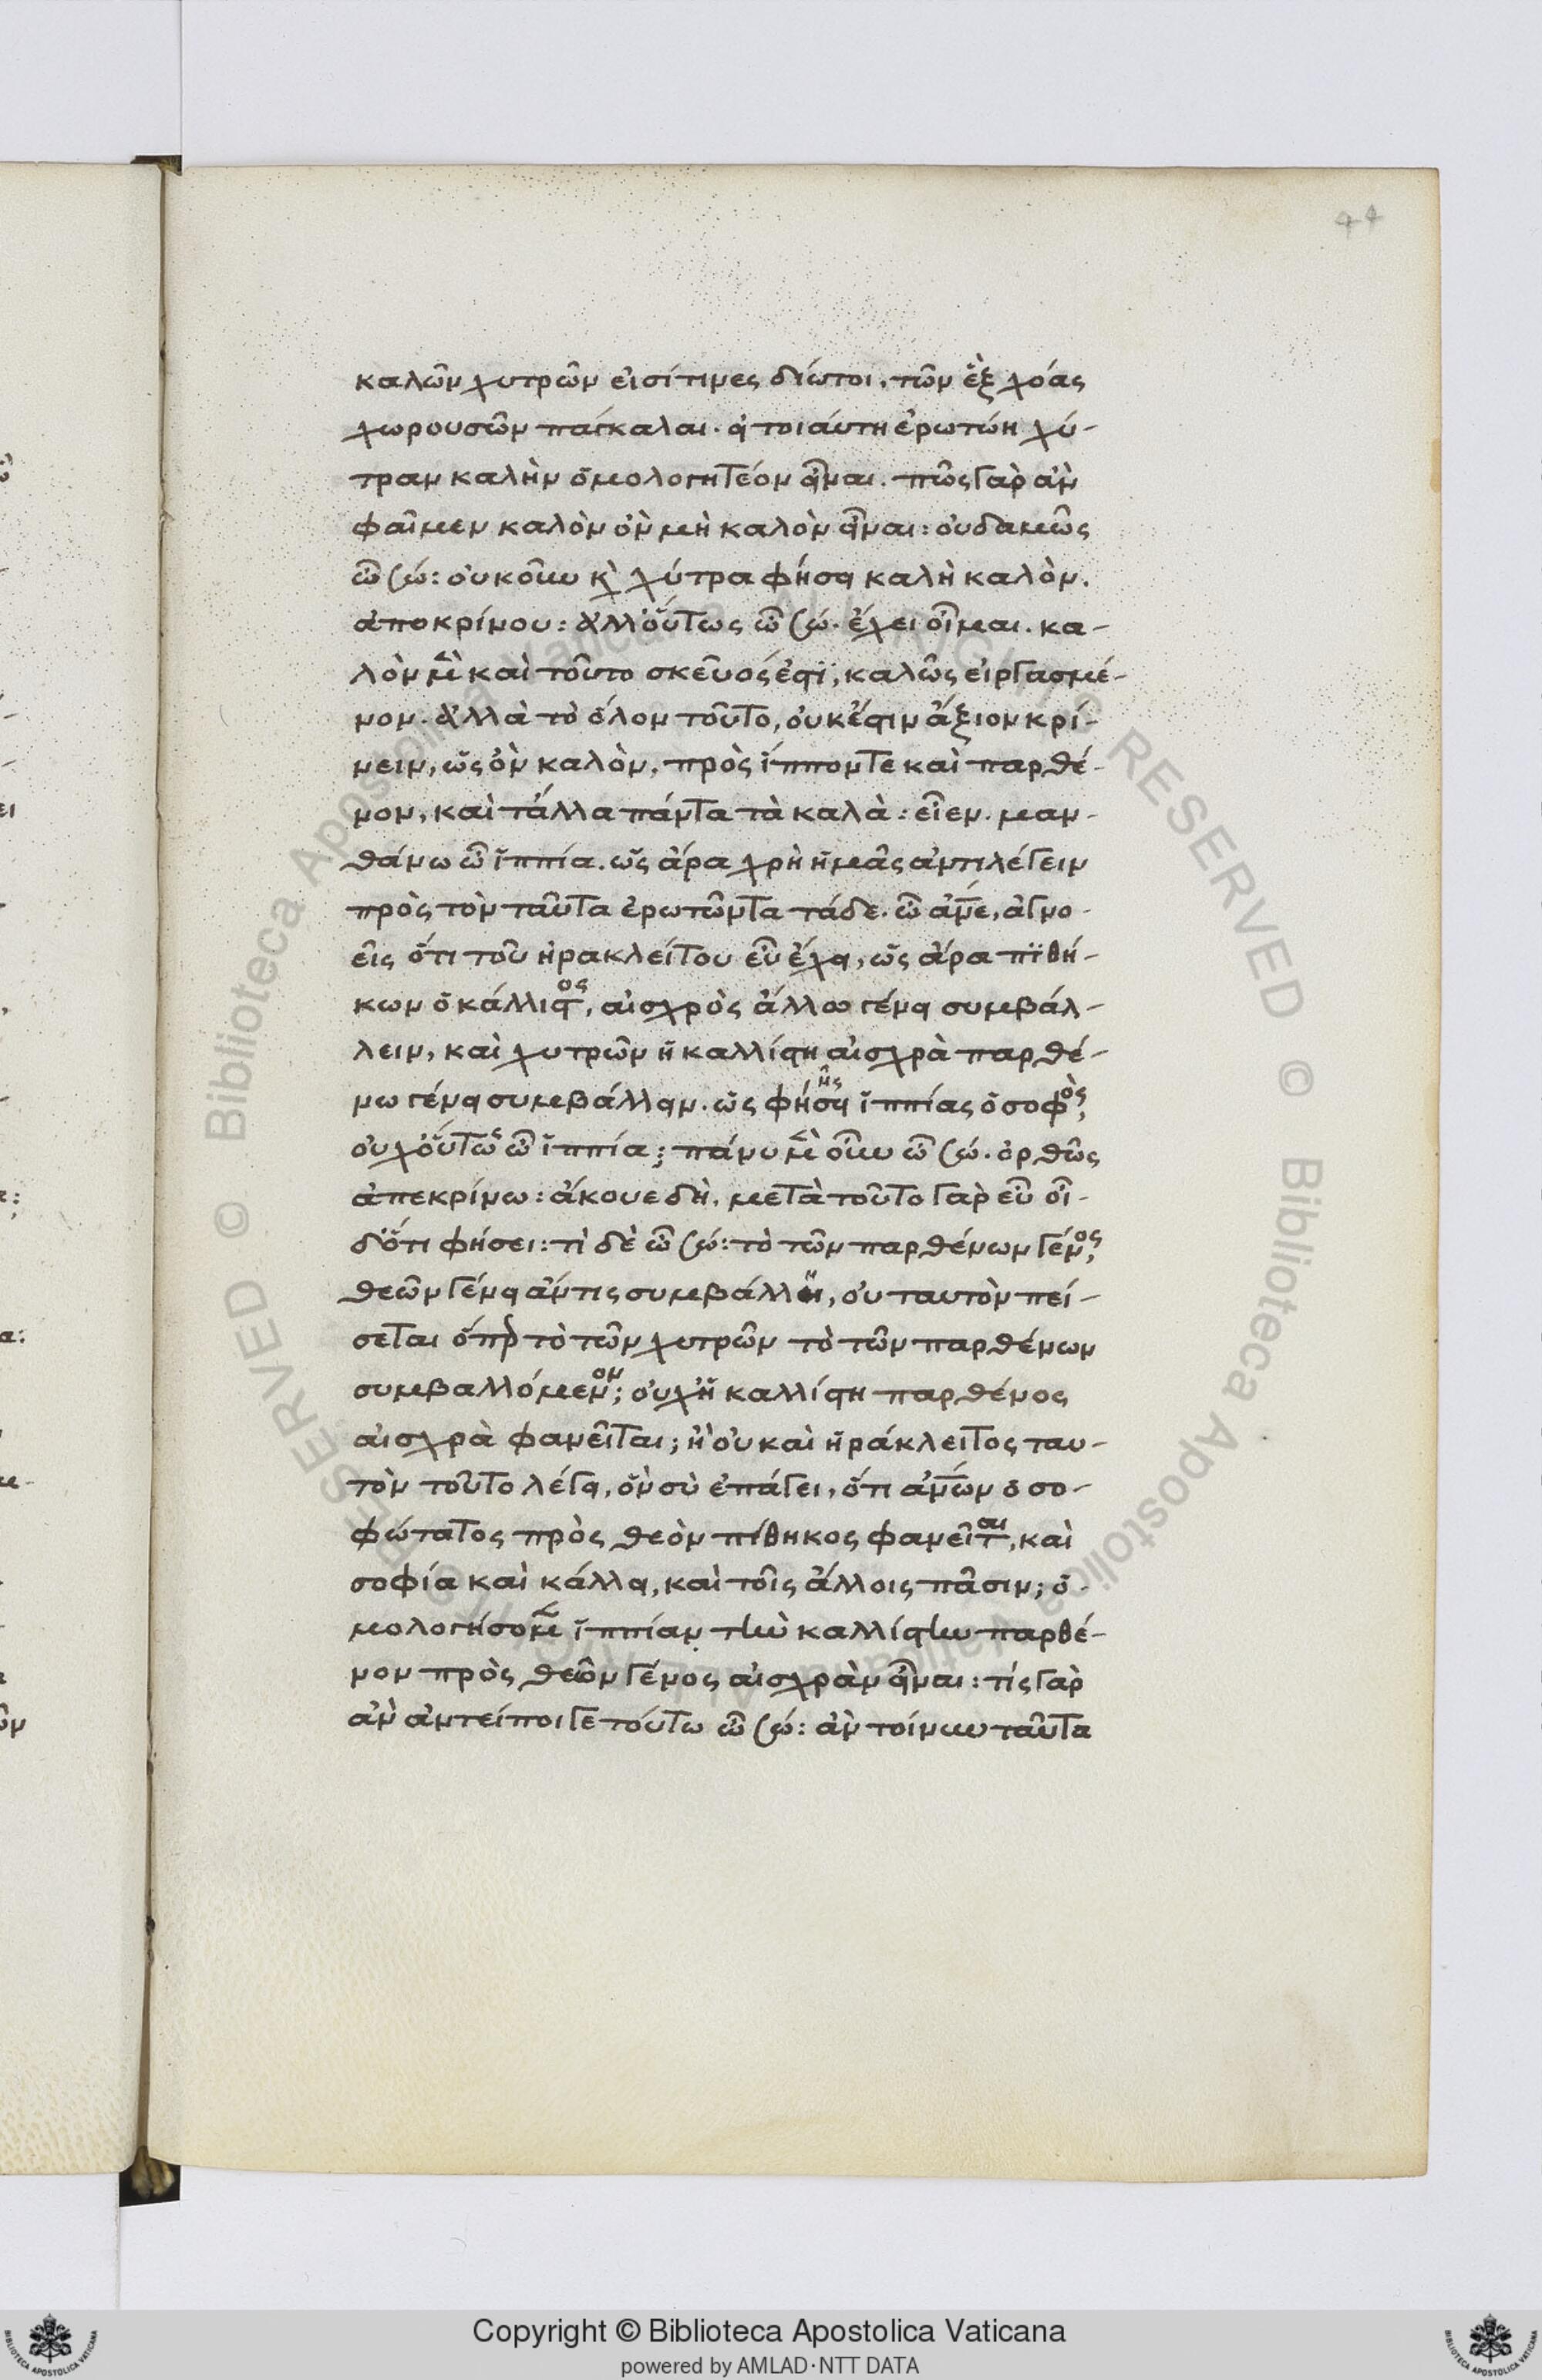 44
καλῶν χυτρῶν εἰσί τινες δίωτοι, τῶν ἓξ χοάς
χωρουσῶν πάγκαλαι. εἰ τοιαύτη ἐρωτώη χύ-
τραν καλὴν ὁμολογητέον εἶναι. πῶς γὰρ ἂν
φαῖμεν καλὸν ὂν μὴ καλὸν εἶναι: οὐδαμῶς
ὦ σώ: οὐκοῦν κ(αὶ) χύτρα φήσει καλὴ καλὸν.
ἀποκρίνου: ἀλλ' οὕτως ὦ σώ. ἔχει οἶμαι. κα-
λὸν μὲν καὶ τοῦτο σκεῦός ἐστι, καλῶς εἰργασμέ-
νον. ἀλλὰ τὸ ὅλον τοῦτο, οὐκ ἔστιν ἄξιον κρί-
νειν, ὡς ὂν καλὸν, πρὸς ἵππον τε καὶ παρθέ-
νον, καὶ τἄλλα πάντα τὰ καλὰ: εἶεν. μαν-
θάνω ὦ ἱππία. ὡς ἄρα χρὴ ἡμᾶς ἀντιλέγειν
πρὸς τὸν ταῦτα ἐρωτῶντα τάδε. ὦ ἄνε, ἀγνο-
εῖς ὅτι τοῦ ἡρακλείτου εὖ ἔχει, ὡς ἄρα πϊθή-
κων ὁ κάλλιστος, αἰσχρὸς ἄλλω γένει συμβάλ-
λειν, καὶ χυτρῶν ἡ καλλίστη αἰσχρὰ παρθέ-
νω γένει συμβάλλειν. ὥς φήσει ῆς ἱππίας ὁ σοφὸς,
οὐχ οὕτως ὦ ἱππία; πάνυ μὲν οὖν ὦ σώ. ὀρθῶς
ἀπεκρίνω: ἄκουε δὴ. μετὰ τοῦτο γὰρ εὖ οἶ-
δ' ὅτι φήσει: τὶ δὲ ὦ σώ: τὸ τῶν παρθένων γένος,
θεῶν γένει ἄν τις συμβάλλη, οὐ ταυτὸν πεί-
σεται ὅπερ τὸ τῶν χυτρῶν τὸ τῶν παρθένων
συμβαλλόμενον; οὐχ ἡ καλλίστη παρθένος
αἰσχρὰ φανεῖται; ἢ οὐ καὶ ἡράκλειτος ταυ-
τὸν τοῦτο λέγει, ὃν σὺ ἐπάγει, ὅτι ἀνων ὁ σο-
φώτατος πρὸς θεὸν πίθηκος φανεῖται, καὶ
σοφία καὶ κάλλει, καὶ τοῖς ἄλλοις πᾶσιν; ὁ-
μολογήσομεν ἱππίαν τὴν καλλίστην παρθέ-
νον πρὸς θεῶν γένος αἰσχρὰν εἶναι: τίς γὰρ
ἂν ἀντείποι γε τούτω ὦ σώ: ἂν τοίνυν ταῦτα
Copyright © Biblioteca Apostolica Vaticana
powered by AMLAD·NTT DATA